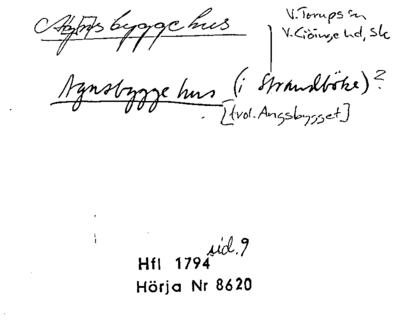 Agnsbyggehus
V. Torups sn
V. Göinge hd, Sk
Agnsbygge hus (i Strandböke)?
[trol. Angsbygget]
sid. 9
Hfl 1794
Hörja Nr 8620